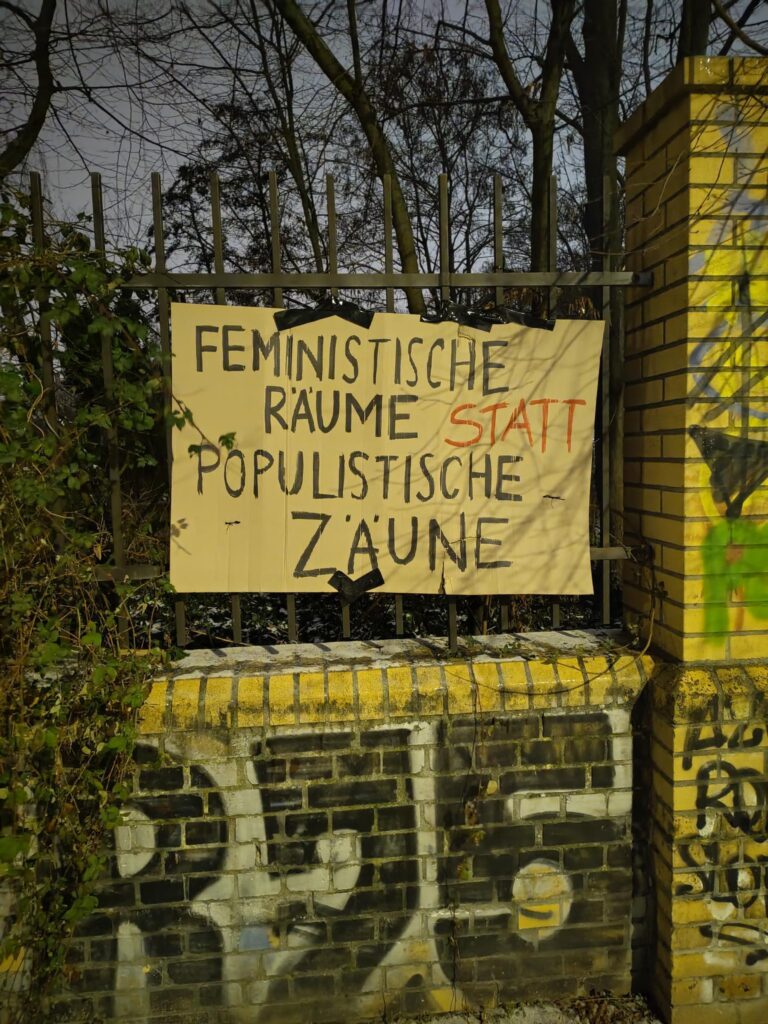 FEMINISTISCHE
RÄUME STATT
POPULISTISCHE
ZÄUNE